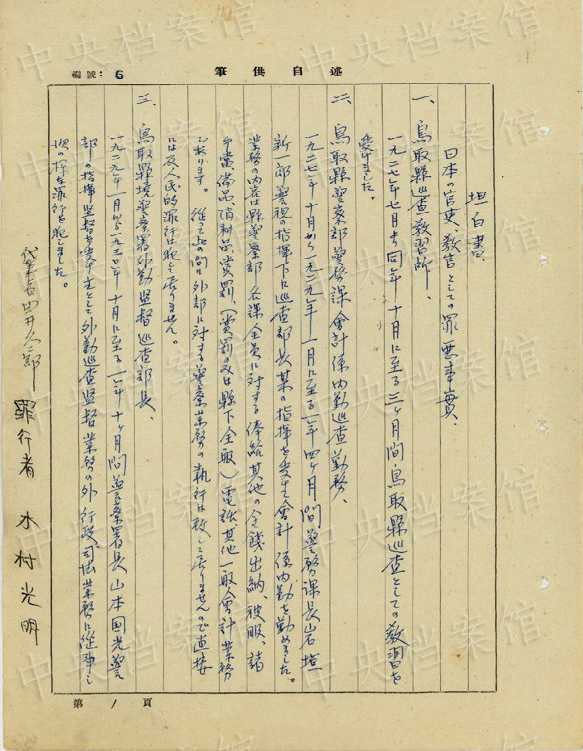 編號: 6
筆供述自
坦白書
日本の官吏、教官としての罪悪事実、
一、鳥取縣巡查教習所、
一九二七年七月より同年十月に至る三ヶ月間鳥取縣巡查としての教習を
受けました。
二、鳥取縣警察部警務課會計係内勤巡查勤務、
一九二七年十月から一九二九年一月に至る一年四ヶ月間警務課長岩垣
新一郎警視の指揮下に巡查部長某の指揮を受けて會計係内勤を勤めました。
業務の内容は縣警察部各課全員に対する俸給其他の金錢出納、被服、諸
手當、備品、消耗品、賞罰、(賞罰のみは縣下全般)電話其他一般會計業務
であります。従って此の間は外部に対する警察業務の執行は致して居りませんので直接
には反人民的罪行は犯して居りません。
三、鳥取縣境警察署外勤監督巡查部長、
一九二九年一月から一九三〇年十月に至る一年十ヶ月間警察署長山本国光警
部の指揮監督を受け主として外勤巡查監督業務の外行政、司法業務に従事し
次の様な罪行を犯しました。
代筆者
罪行者 木村光明
第 1 頁
中央档案馆